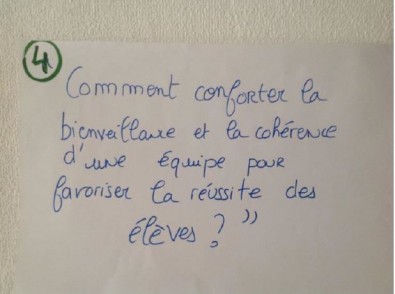 4
Comment conforter la
bienveillance et la cohérence
d'une équipe pour
favoriser la réussite des
élèves ? ”